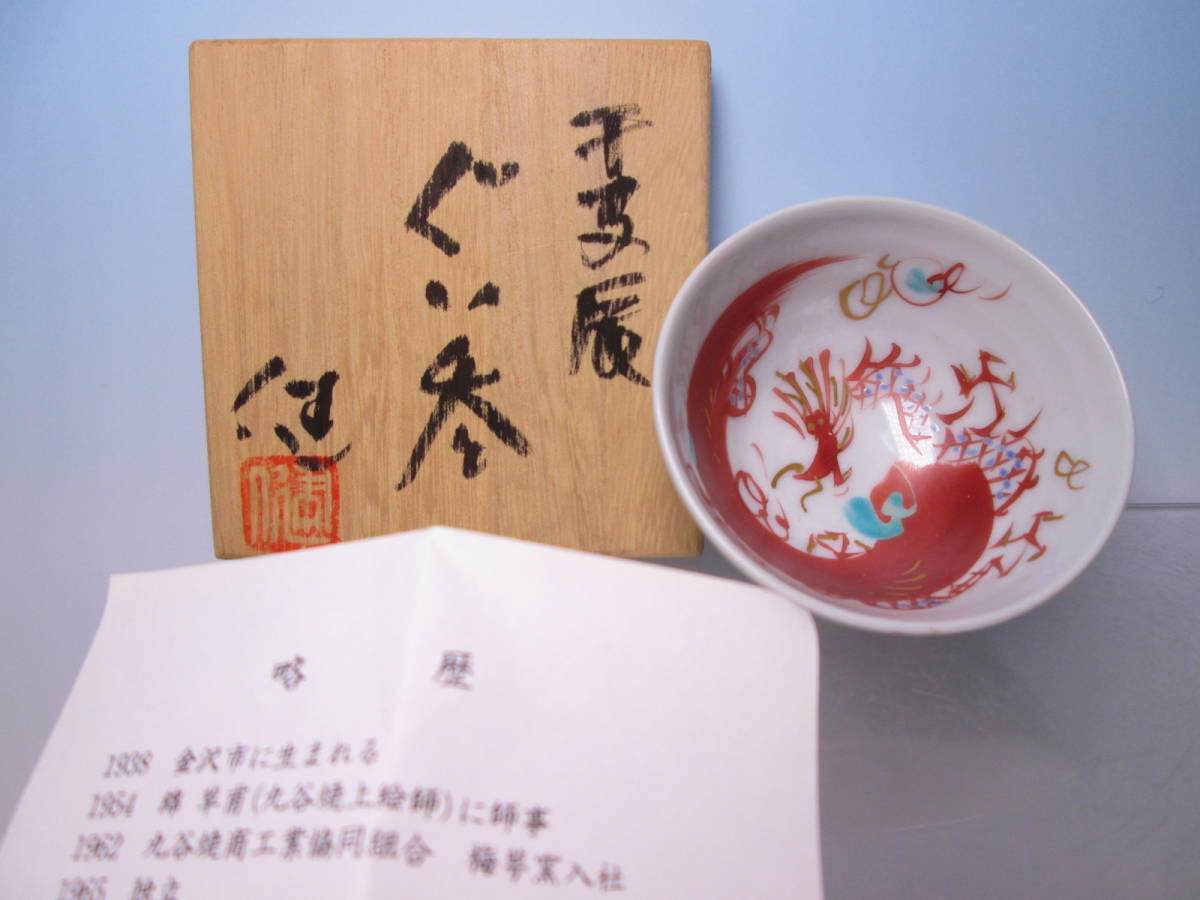 干支辰
ぐい呑
健
略 歴
1938 金沢市に生まれる
1954 錦 早甫(九谷焼上絵師)に師事
1962 九谷焼商工業協同組合 梅 窯入社
1965 独立